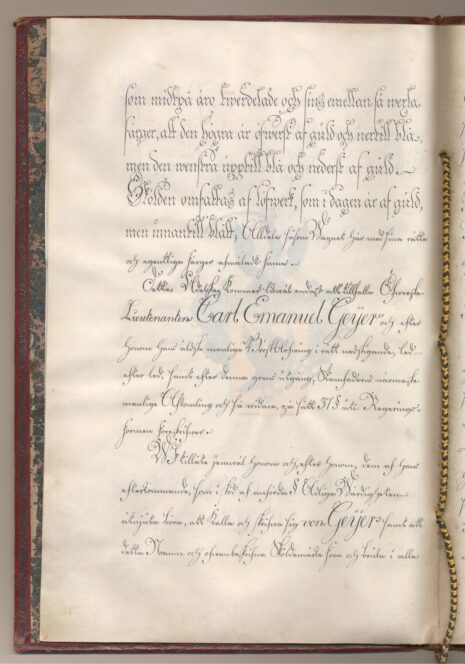 som midtpå äro twerdelade och sins emellan så wexla
färger, att den högra är ofwerst af guld och nertill blå,
men den wenstra upptill blå och nederst af guld.
Skölden omfattas af löfwerk, som i dagen är af guld,
men innantill blått; Alldeles såsom Wapnet här med sina rätta
och egentliga färger afmåladt finnes.
Detta Adelskap kommer ändast att tillfalla Öfwerste-
Lieutenanten Carl Emanuel Geijer och efter
honom hans äldste manlige Bröst Arfvinge i rätt nedstigande led
efter led, samt efter denna grens utgång, Stamfaderns närmaste
manlige Afkomling och så widare, på sätt 37 § uti Regerings-
formen föreskrifwer.
Wi tillåte jemwäl honom och, efter honom, dem af hans
efterkommande, som i stöd af anförde § Adliga Wärdigheten
åtnjuta böra, att kalla och skrifwa sig von Geijer samt att
detta Namn och ofwanbeskrifne Sköldemärke föra och bruka i alla